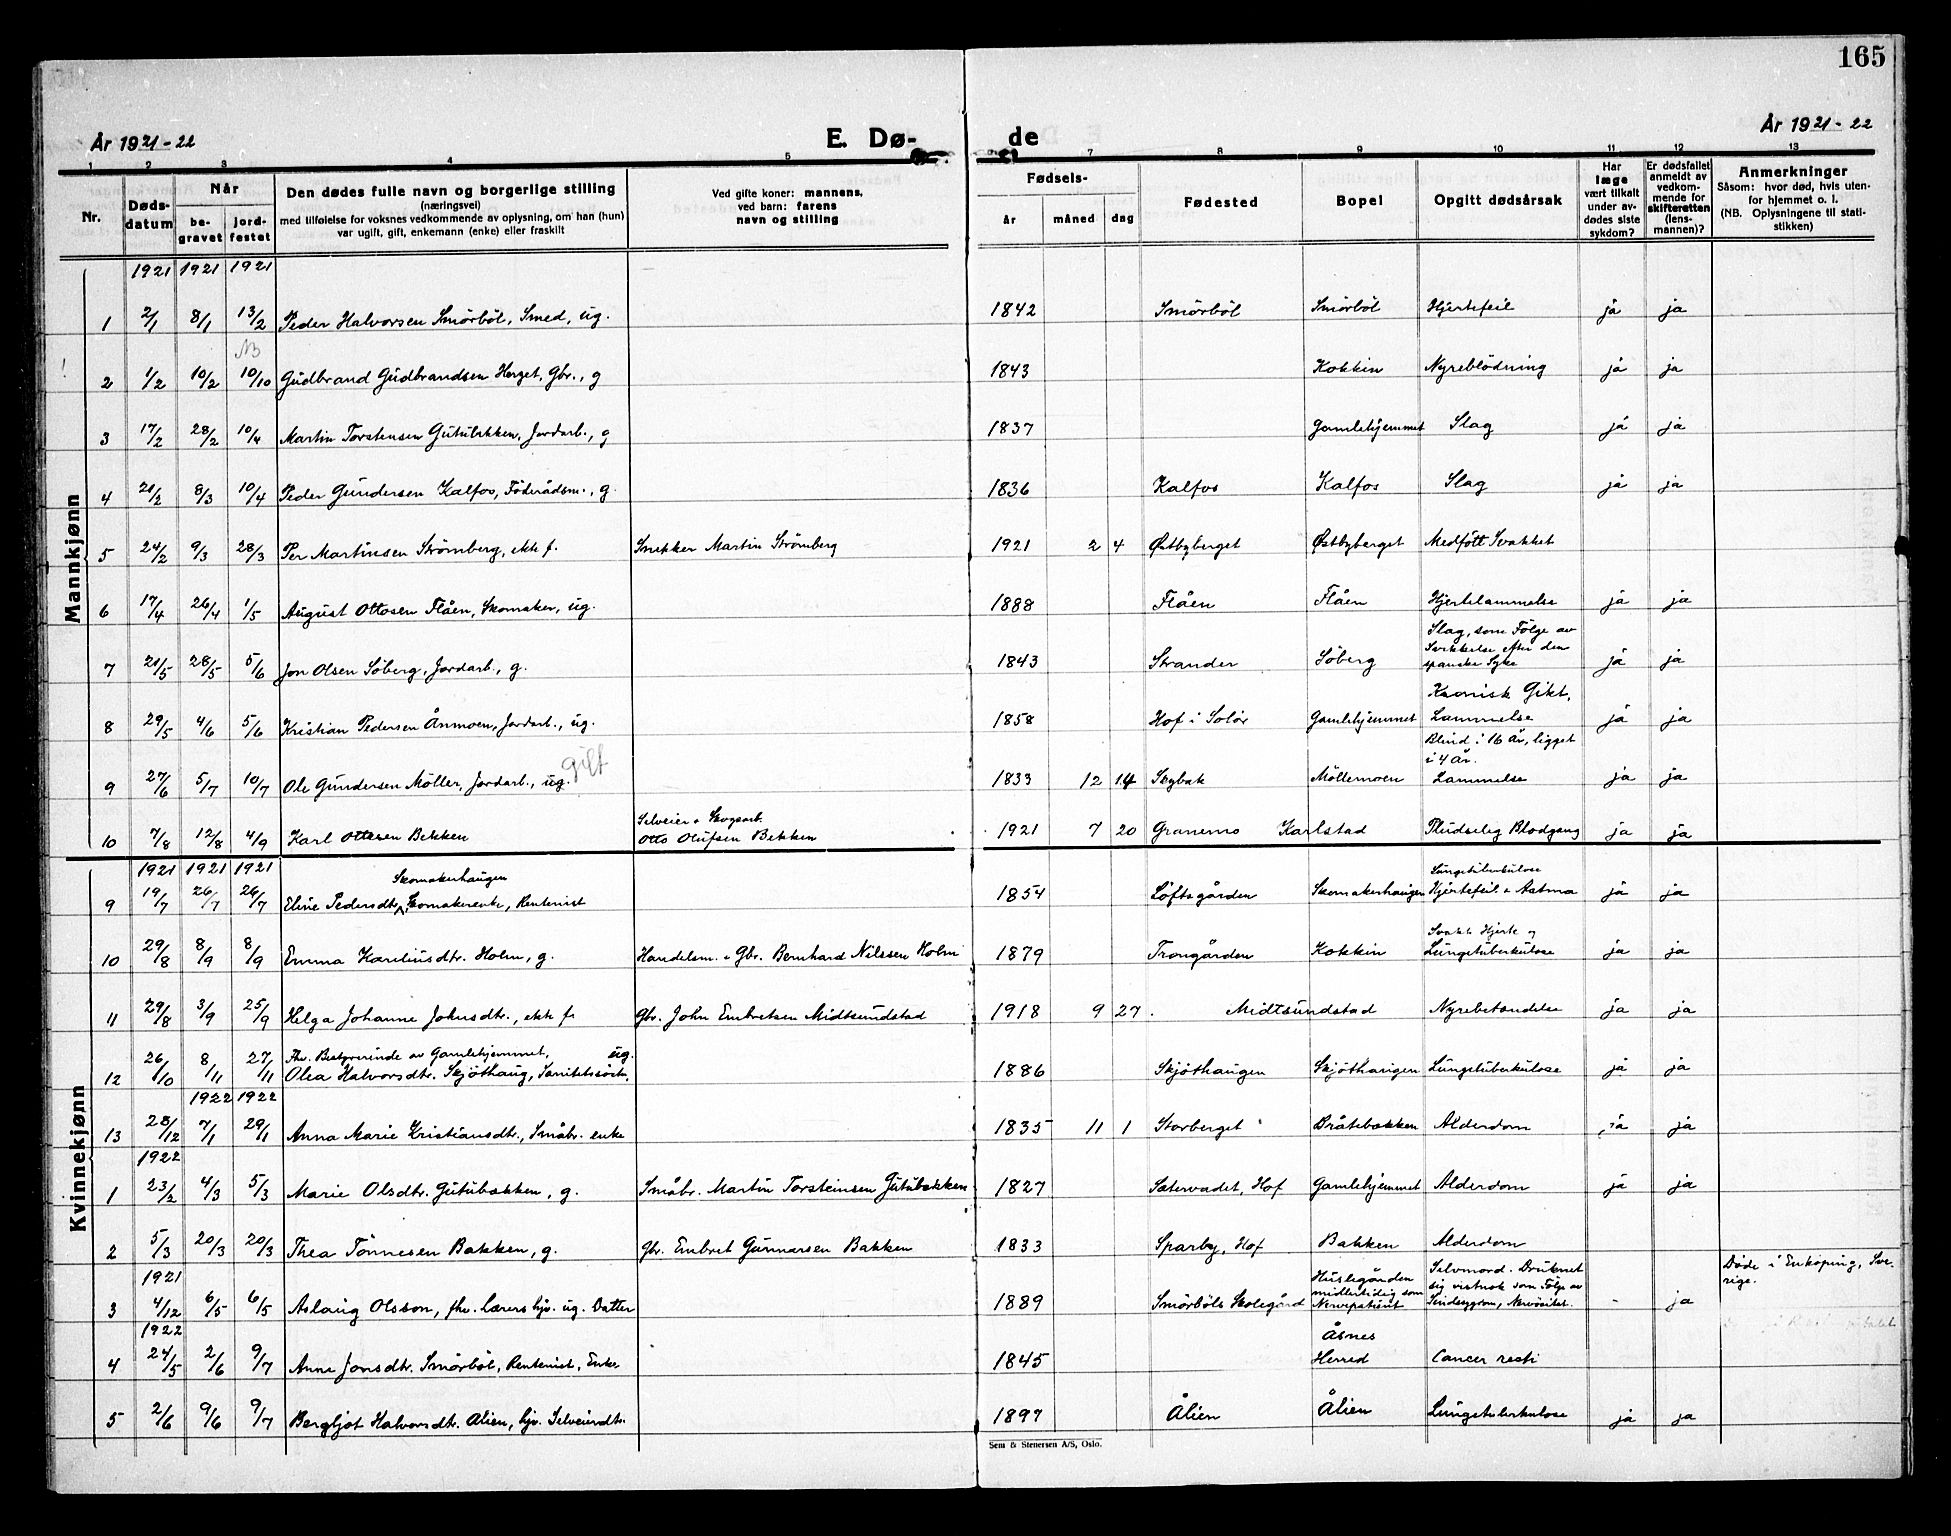 165
År 1921-22
E. Dø-
de
År 1921-22
1 2 3 4 5 7 8 9 10 11 12 13
Nr.
Døds-
datum
Når
be-
gravet
jord-
festet
Den dødes fulle navn og borgerlige stilling
(næringsvei)
med tilføielse for voksnes vedkommende av oplysning, om han (hun)
var ugift, gift, enkemann (enke) eller fraskilt
Ved gifte koner: mannens,
ved barn: farens
navn og stilling
Fødsels-
år måned dag
Fødested
Bopel
Opgitt dødsårsak
Har
læge
vært tilkalt
under av-
dødes siste
sykdom?
Er dødsfallet
anmeldt av
vedkom-
mende for
skifteretten
(lens-
mannen)?
Anmerkninger
Såsom: hvor død, hvis uten-
for hjemmet o. l.
(NB. Oplysningene til stati-
stikken)
Mannkjønn
1921 1921 1921
1 2/1 8/1 13/2 Peder Halvorsen Smörböl, Smed, ug. 1842 Smörböl Smörböl Hjertefeil ja ja
NB
2 1/2 10/2 10/10 Gudbrand Gudbrandsen Herget, Gbr., g 1843 Kokkin Nyreblödning ja ja
3 17/2 28/2 10/4 Martin Torstensen Gutubakken, Jordarb., g 1837 Gamlehjemmet Slag ja ja
4 21/2 8/3 10/4 Peder Gundersen Kalfos, Föderådsm., g. 1836 Kalfos Kalfos Slag ja ja
5 24/2 9/3 28/3 Per Martinsen Strömberg, ekte f. Snekker Martin Strömberg 1921 2 4 Østbyberget Østbyberget Medfött Svakhet
6 17/4 26/4 1/5 August Ottosen Flåen, Skomaker, ug. 1888 Flåen Flåen Hjertelammelse ja ja
Slag, som Fölge av
Svekkelse efter den
7 21/5 28/5 5/6 Jon Olsen Söberg, Jordarb., g. 1843 Strander Söberg spanske Syke ja ja
Kronisk Gikt,
8 29/5 4/6 5/6 Kristian Pedersen Ånmoen, Jordarb., ug. 1858 Hof i Solör Gamlehjemmet Lammelse ja ja
Blind i 16 år, ligget
i 4 år.
gift
9 27/6 5/7 10/7 Ole Gundersen Möller, Jordarb., ug. 1833 12 14 Skybak Möllemoen Lammelse ja ja
Selveier & Skogsarb.
10 7/8 12/8 4/9 Karl Ottesen Bekken Otto Olufsen Bekken 1921 7 20 Granemo Karlstad Pludselig Blodgang ja ja
Kvinnekjønn
1921 1921 1921
Skomakerhaugen Lungetuberkulose
9 19/7 26/7 26/7 Eline Pedersdtr. Skomakerenke, Rentenist 1854 Löftsgården Skomakerhaugen Hjertefeil & Astma ja ja
Svakt Hjerte og
10 29/8 8/9 8/9 Emma Kareliusdtr. Holm, g. Handelsm. & Gbr. Bernhard Nilssen Holm 1879 Trongården Kokkin Lungetuberkulose ja ja
11 29/8 3/9 25/9 Helga Johanne Johnsdtr., ekte f. Gbr. John Embretsen Midtsundstad 1918 9 27 Midtsundstad Nyrebetændelse ja ja
Fhv. Bestyrerinde av Gamlehjemmet, ug.
12 26/10 8/11 27/11 Olea Halvorsdtr. Skjöthaug, Sanitetssöst. 1886 Skjöthaugen Skjöthaugen Lungetuberkulose ja ja
1922 1922
13 28/12 7/1 29/1 Anna Marie Kristiansdtr., Småbr. enke 1835 11 1 Storberget Bråtebakken Alderdom ja ja
1922
1 23/2 4/3 5/3 Marie Olsdtr. Gutubakken, g. Småbr. Martin Torsteinsen Gutubakken 1827 Sætervadet, Hof Gamlehjemmet Alderdom ja ja
2 5/3 20/3 20/3 Thea Tönnesen Bakken, g. Gbr. Embret Gunnarsen Bakken 1833 Sparby, Hof Bakken Alderdom
Döde i Enköping, Sve-
rige.
1921
Huslegården Selvmord. Druknet
midlertidig som sig vistnok som Fölge av
3 4/12 6/5 6/5 Aslaug Olsson, fhv. Lærers hjv. ug. Datter 1889 Smörböls Skolegård Nervepatient Sindssygdom, Nervösitet. - ja
1922
Åsnes
4 24/5 2/6 9/7 Anne Jonsdtr. Smörböl, Rentenist, Enke 1845 Herred Cancer recti
5 2/6 9/6 9/7 Bergljot Halvorsdtr. Ålien, hjv. Selveierdtr. 1897 Ålien Ålien Lungetuberkulose ja ja
Sem & Stenersen A/S, Oslo.